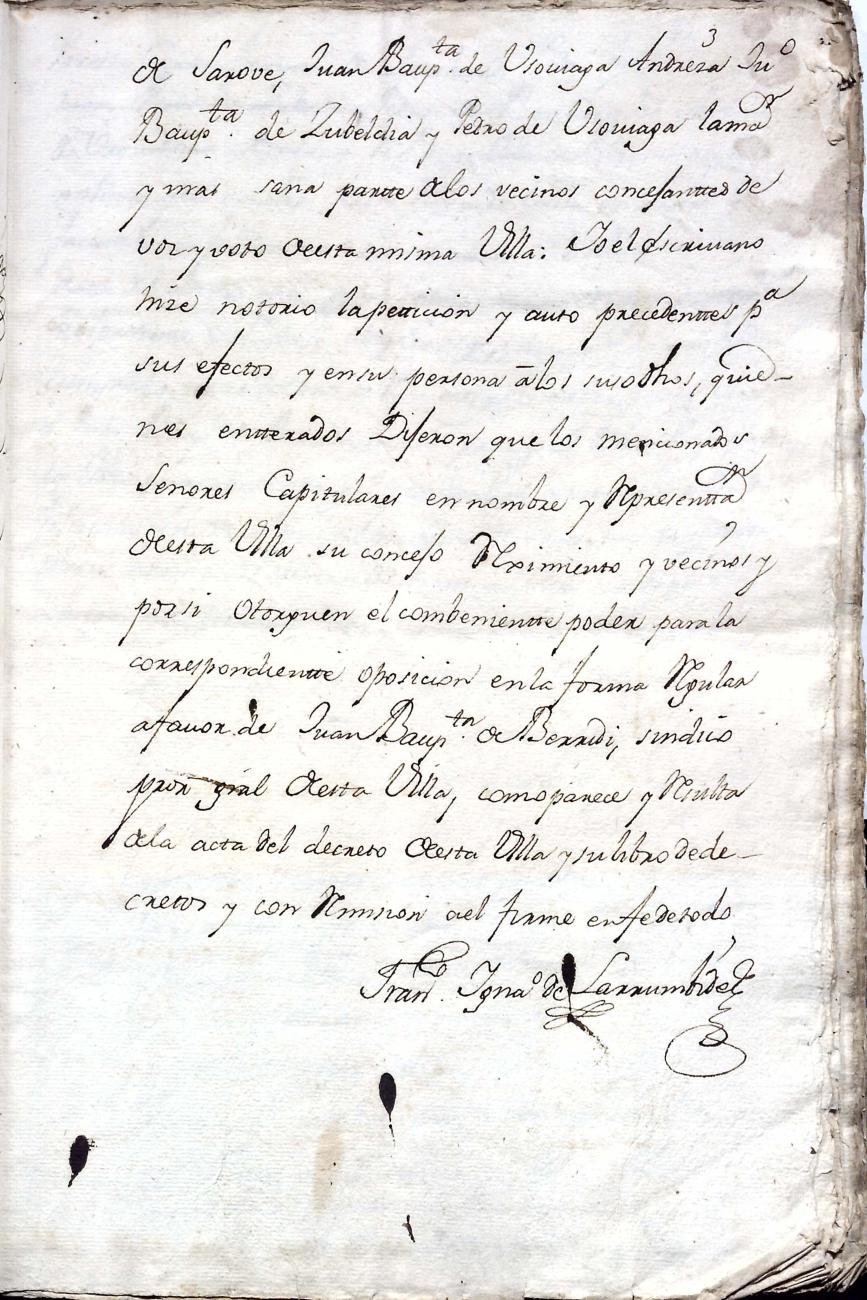 3
de Sarove, Juan Baup.ta de Usoviaga Andreza Ju.o
Baup.ta de Zubeldia y Pedro de Usoviaga la maor
y mas sana partte de los vecinos concejanttes de
voz y voto de esta misma Villa: Yo el escrivano
hize notorio la petticion y auto precedenttes p.a
sus efectos y en su persona â los susodhos, quie-
nes entterados Dijeron que los mencionados
Senores Capitulares en nombre y Representtaon
de esta Villa su concejo Reximiento y vecinos y
por si Otorguen el combenientte poder para la
correspondientte oposicion en la forma Regular
a favor de Juan Baup.ta de Berridi, sindico
pror gral de esta Villa, como parece y Resulta
de la acta del decreto de esta Villa y su libro de de-
cretos y con Remision a el firme en fe de todo
Fran.co Igna.o de Larrumbide